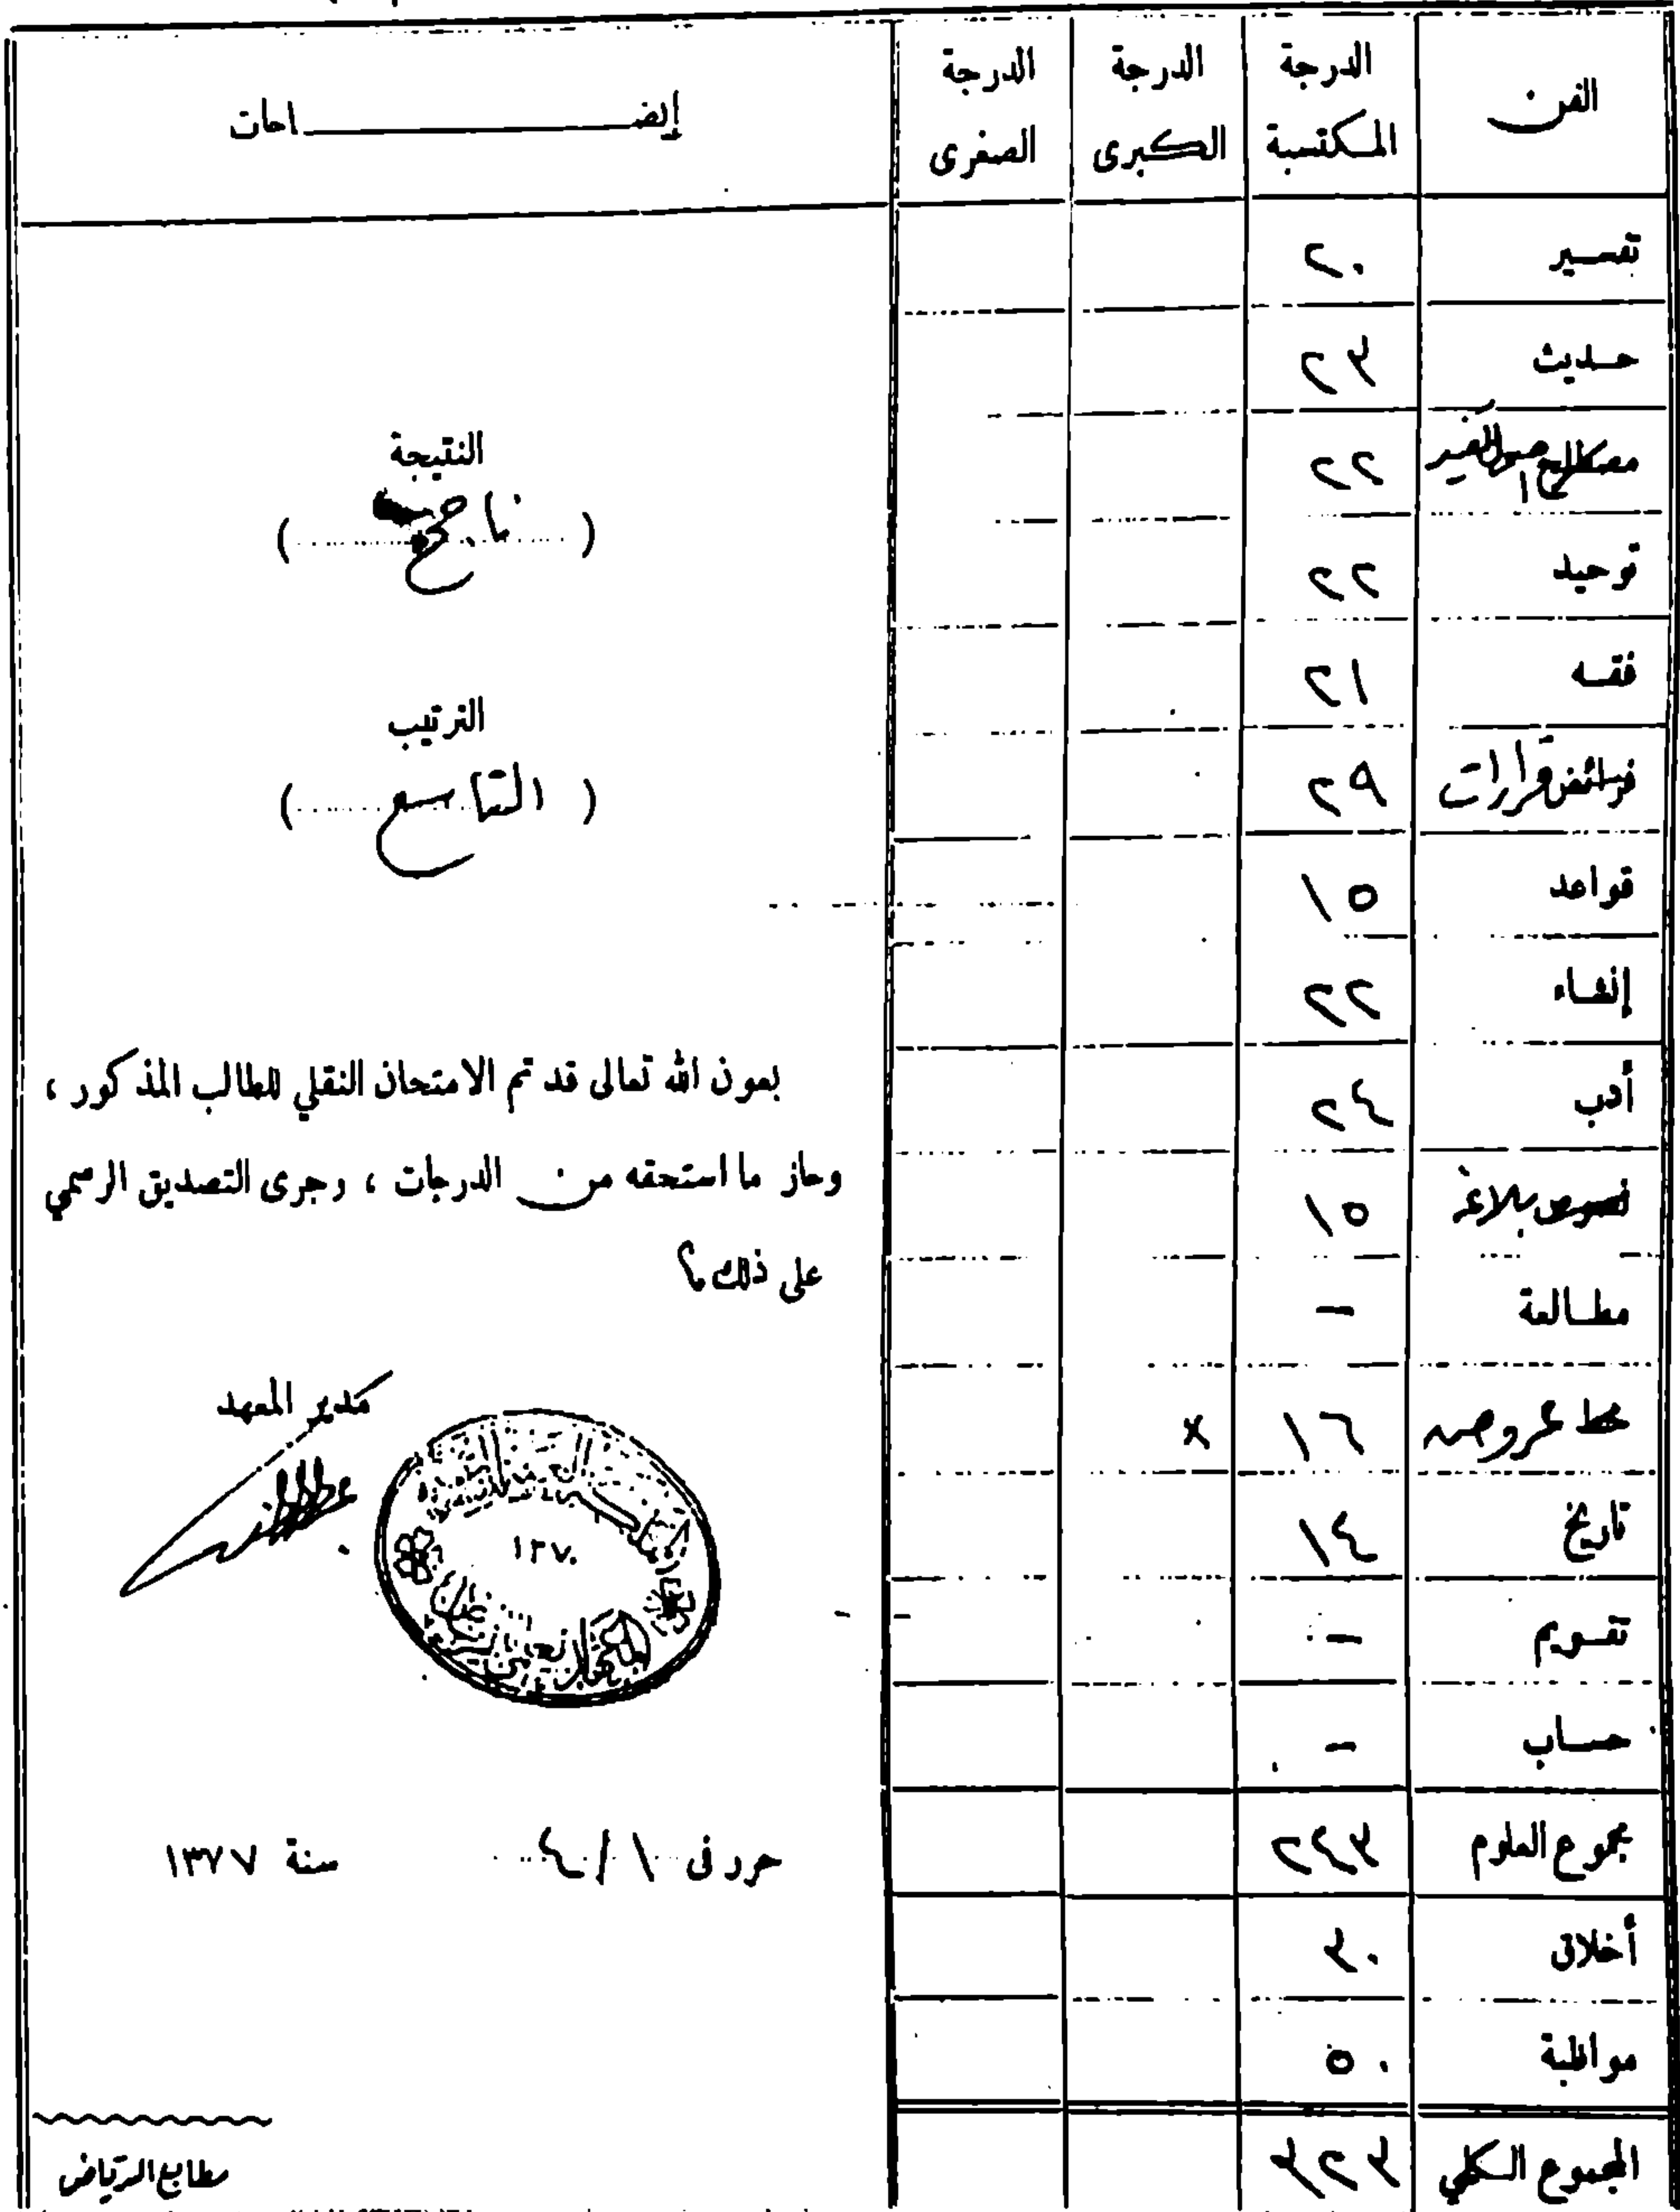 الفن الدرجة المكتسبة الدرجة الكبرى الدرجة الصغرى إيضــــــاحات
تفسير ٢٠
حديث ٢٣
مصطلح أصول التفسير ٢٢
توحيد ٢٢
فقه ٢١
فرائض قراءات ٢٩
قواعد ١٥
إنشاء ٢٢
أدب ٢٤
نصوص بلاغة ١٥
مطالعة -
خط عروض ١٦ x
تاريخ ١٤
تقويم -
حساب -
مجموع العلوم ٢٤٣
أخلاق ٣٠
مواظبة ٥٠
المجموع الكلي ٣٢٣
النتيجة
( ناجح )
الترتيب
( التاسع )
بعون الله تعالى قد تم الامتحان النقلي للطالب المذكور ،
وحاز ما استحقه من الدرجات ، وجرى التصديق الرسمي
على ذلك ؟
مدير المعهد
١٣٧٠
حرر في ١ / ٤ سنة ١٣٧٧
مطابع الرياض